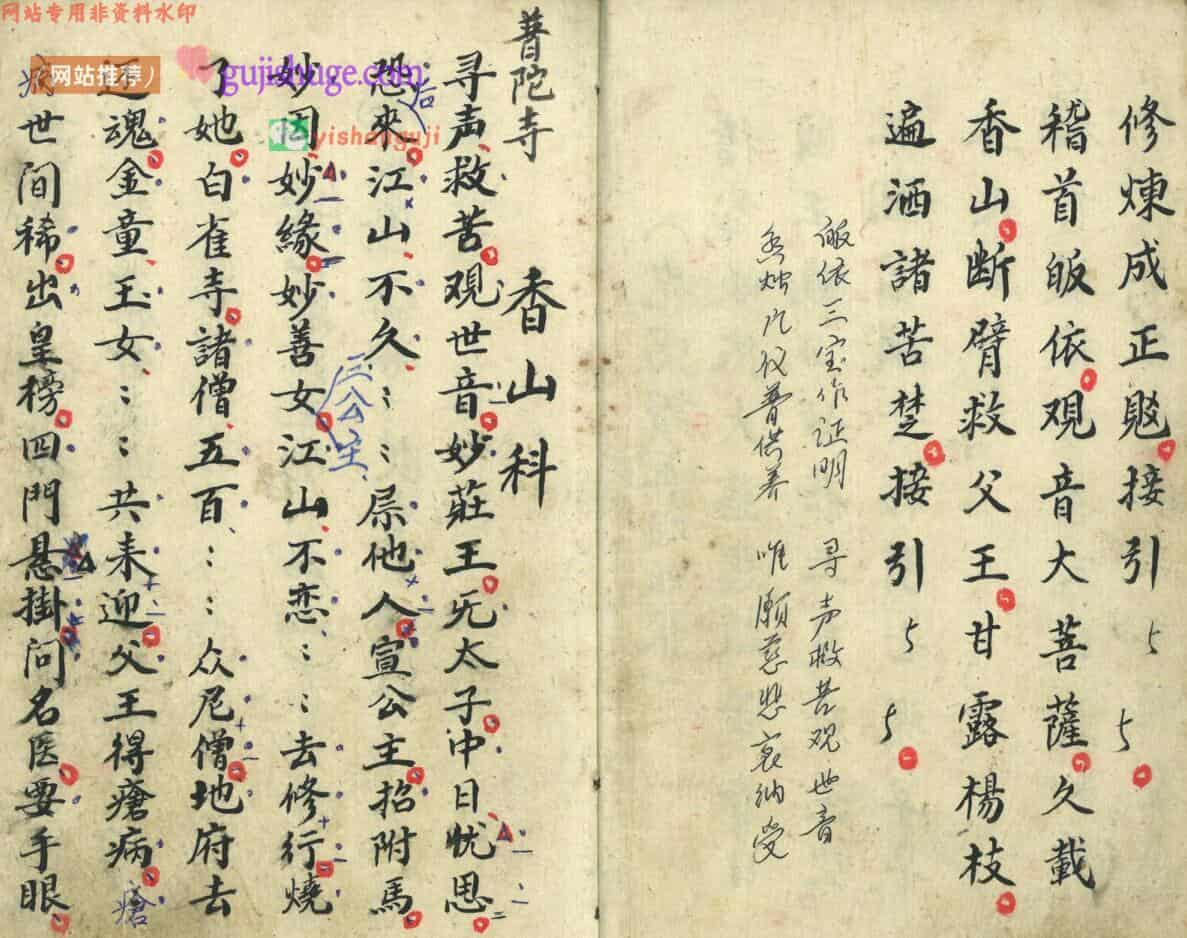 网站专用非资料水印
网站推荐）
gujishuge.com
yishanguji
修煉成正覺接引ㄣㄣ
稽首皈依观音大菩薩久載
香山断臂救父王甘露楊枝
遍洒諸苦楚接引ㄣㄣ
皈依三宝作证明 寻声救苦观世音
普供养 唯願慈悲哀纳受
普陀寺
香山科
寻声救苦观世音妙莊王旡太子中日忧思
恐后來江山不久：：屎他人宣公主招附馬
三公主
妙因妙緣妙善女江山不恋：：去修行燒
了她白雀寺諸僧五百：：众尼僧地府去
还魂金童玉女：：共来迎父王得瘡病
瘡
病世间稀出皇榜四門悬掛问名医要手眼